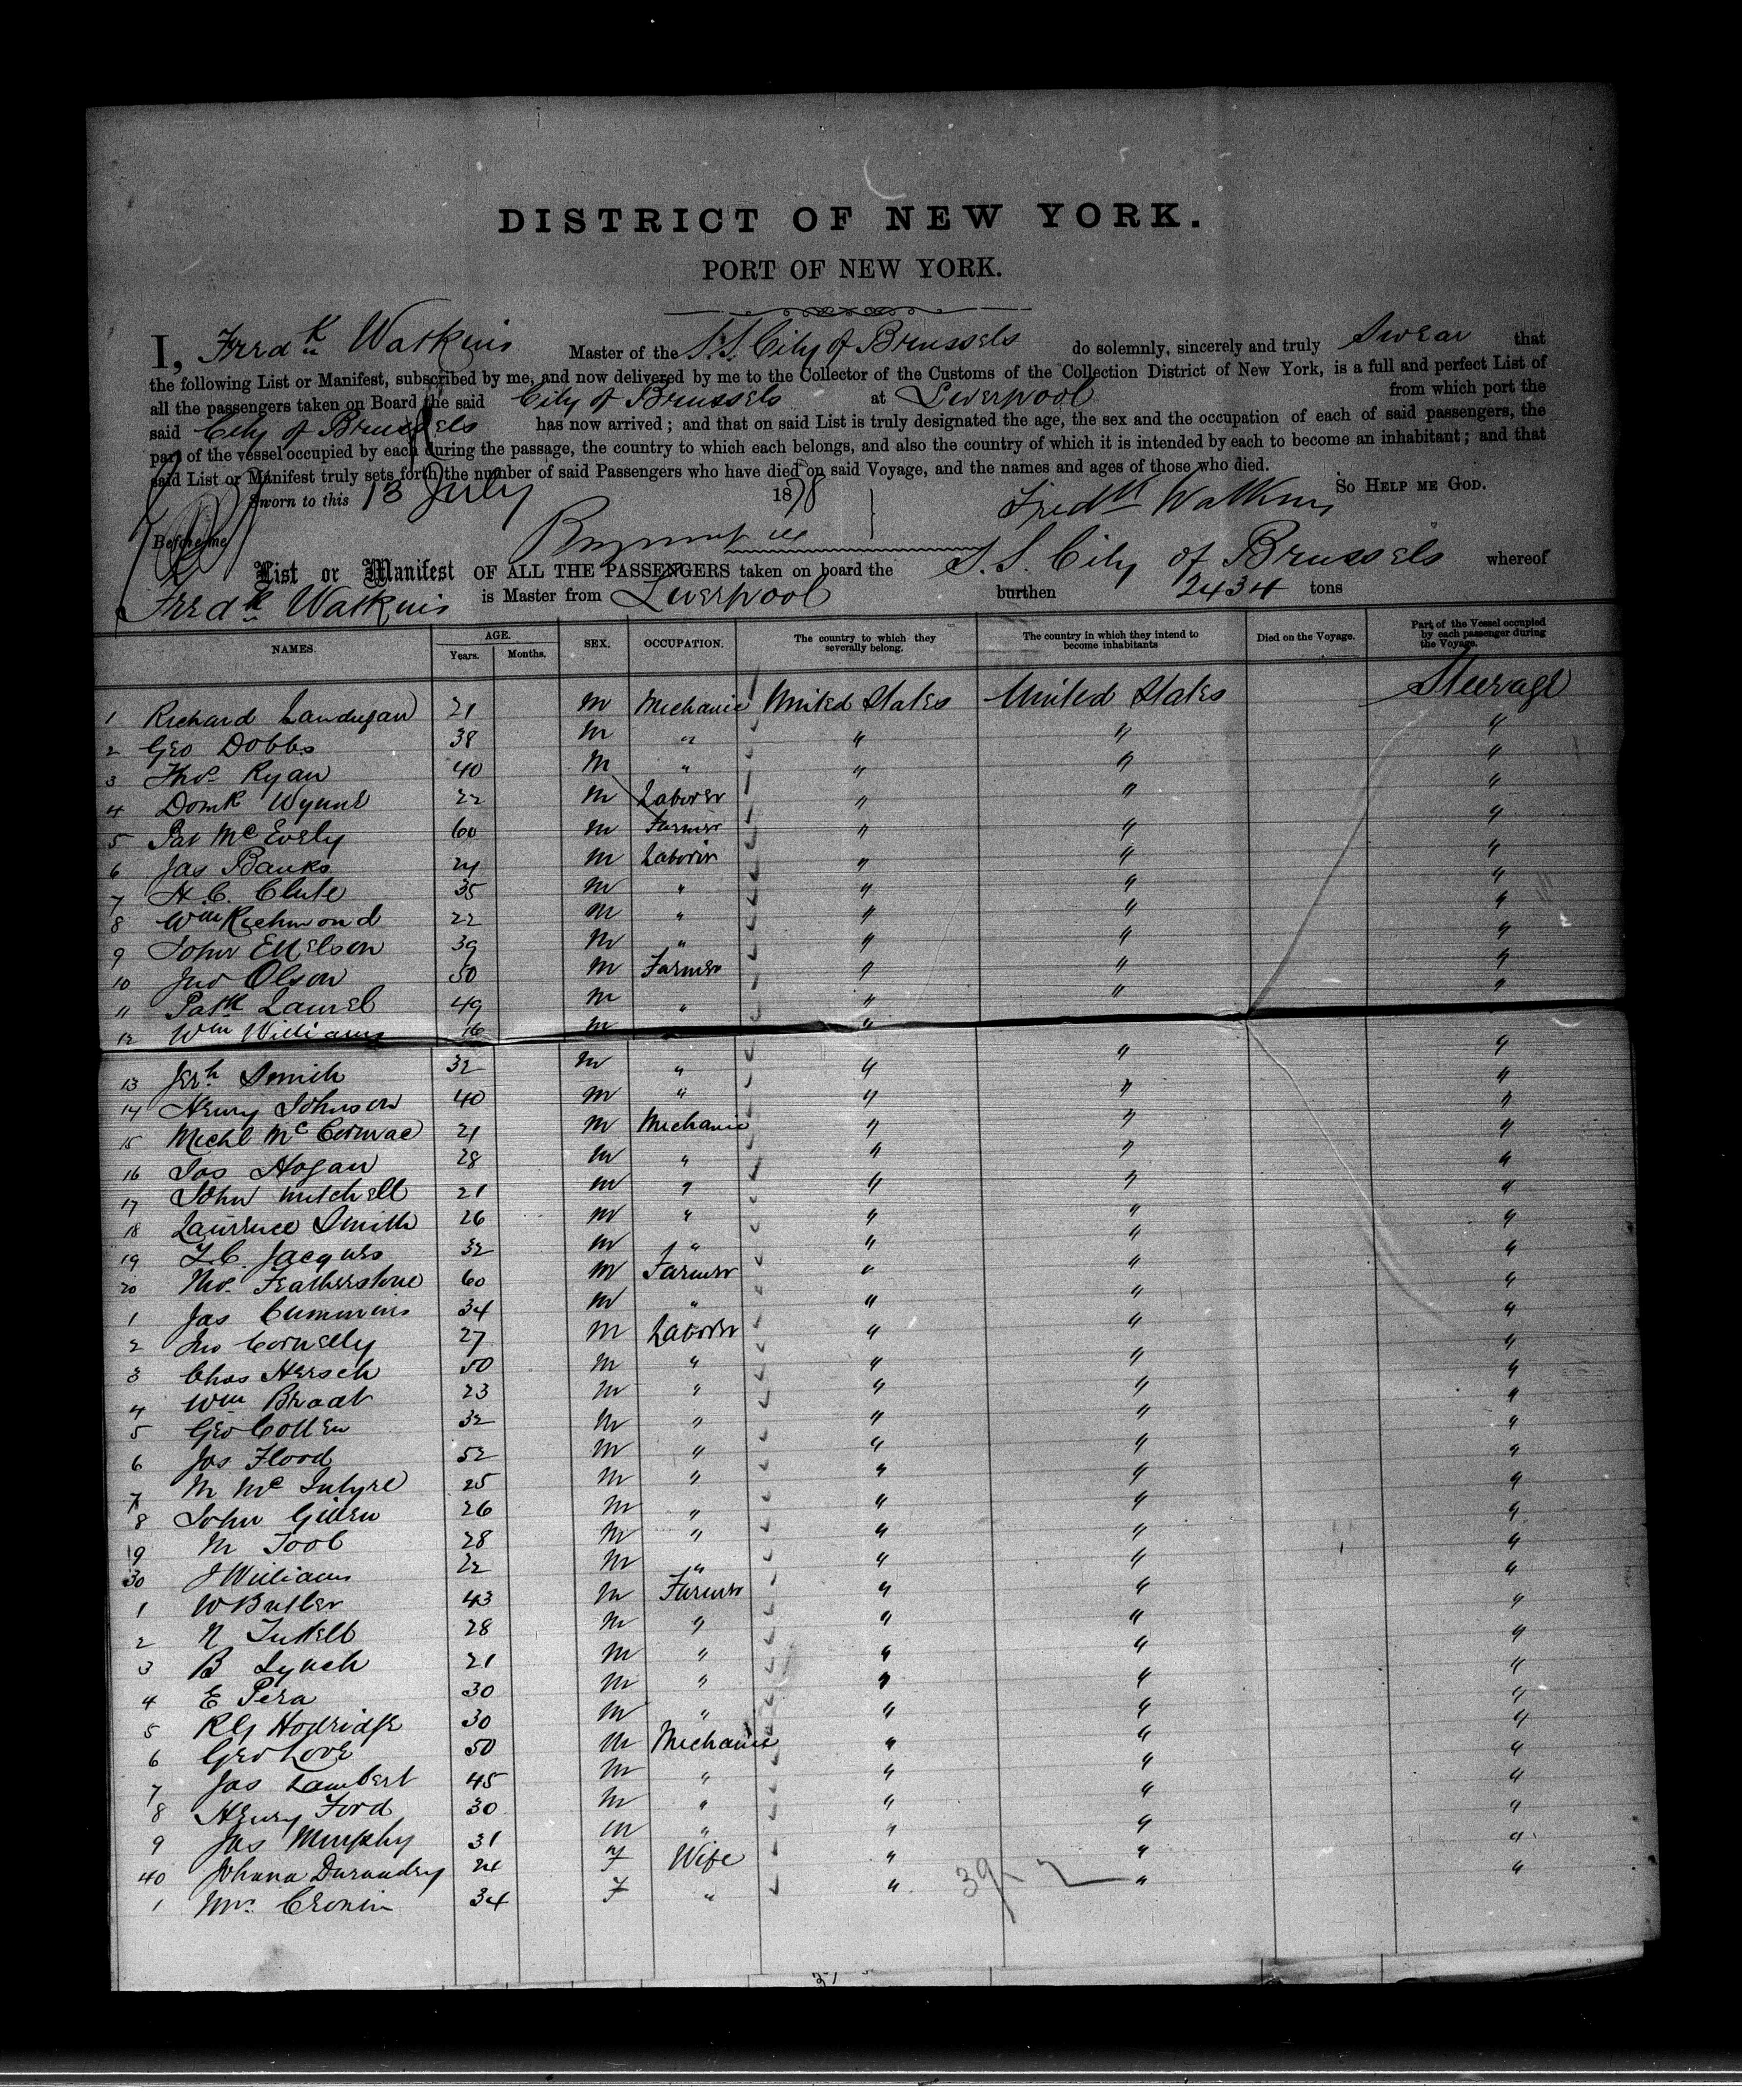 DISTRICT OF NEW YORK.
PORT OF NEW YORK.
I, Fredk Watkins Master of the S.S. City of Brussels do solemnly, sincerely and truly Swear that
the following List or Manifest, subscribed by me, and now delivered by me to the Collector of the Customs of the Collection District of New York, is a full and perfect List of
all the passengers taken on Board the said City of Brussels at Liverpool from which port the
said City of Brussels has now arrived; and that on said List is truly designated the age, the sex and the occupation of each of said passengers, the
part of the vessel occupied by each during the passage, the country to which each belongs, and also the country of which it is intended by each to become an inhabitant; and that
said List or Manifest truly sets forth the number of said Passengers who have died on said Voyage, and the names and ages of those who died.
So HELP ME GOD.
Sworn to this 13 July 1878 Fredk Watkins
Before me
List or Manifest OF ALL THE PASSENGERS taken on board the S.S. City of Brussels whereof
Fredk Watkins is Master from Liverpool burthen 2434 tons
NAMES. AGE. Years. Months. SEX. OCCUPATION. The country to which they severally belong. The country in which they intend to become inhabitants Died on the Voyage. Part of the Vessel occupied by each passenger during the Voyage.
1 Richard Landugan 21 M Mechanic United States United States Steerage
2 Geo Dobbs 38 M " " " "
3 Thos Ryan 40 M " " " "
4 Domk Wynne 22 M Laborer " " "
5 Pat McEvely 60 M Farmer " " "
6 Jas Banks 24 M Laborer " " "
7 H. C. Clute 35 M " " " "
8 Wm Richmond 22 M " " " "
9 John 39 M " " " "
10 Jno Olson 50 M Farmer " " "
11 Patk 49 M " " " "
12 Wm Williams 16 M " "
13 Jerh Smith 32 M " " " "
14 Henry Johnson 40 M " " " "
15 Michl McCormac 21 M Mechanic " " "
16 Jas Hogan 28 M " " " "
17 John Mitchell 21 M " " " "
18 Laurence Smith 26 M " " " "
19 Jacques 32 M " " " "
20 Thos Featherstone 60 M Farmer " " "
1 Jas Cummins 34 M " " " "
2 Jno Cornelly 27 M Laborer " " "
3 Chas Hersch 50 M " " " "
4 Wm Braat 23 M " " " "
5 Geo Collen 32 M " " " "
6 Jas Flood 52 M " " " "
7 M McIntyre 25 M " " " "
8 John Gillen 26 M " " " "
9 M 28 M " " " "
30 J Williams 22 M " " " "
1 W Butler 43 M Farmer " " "
2 N 28 M " " " "
3 B Lynch 21 M " " " "
4 E Pera 30 M " " " "
5 Hodridge 30 M " " " "
6 Geo Love 50 M Mechanic " " "
7 Jas Lambert 45 M " " " "
8 Henry Ford 30 M " " " "
9 Jas Murphy 31 M " " " "
40 Johana 24 F Wife " " "
1 Mrs Cronin 34 F " " " "
39 2